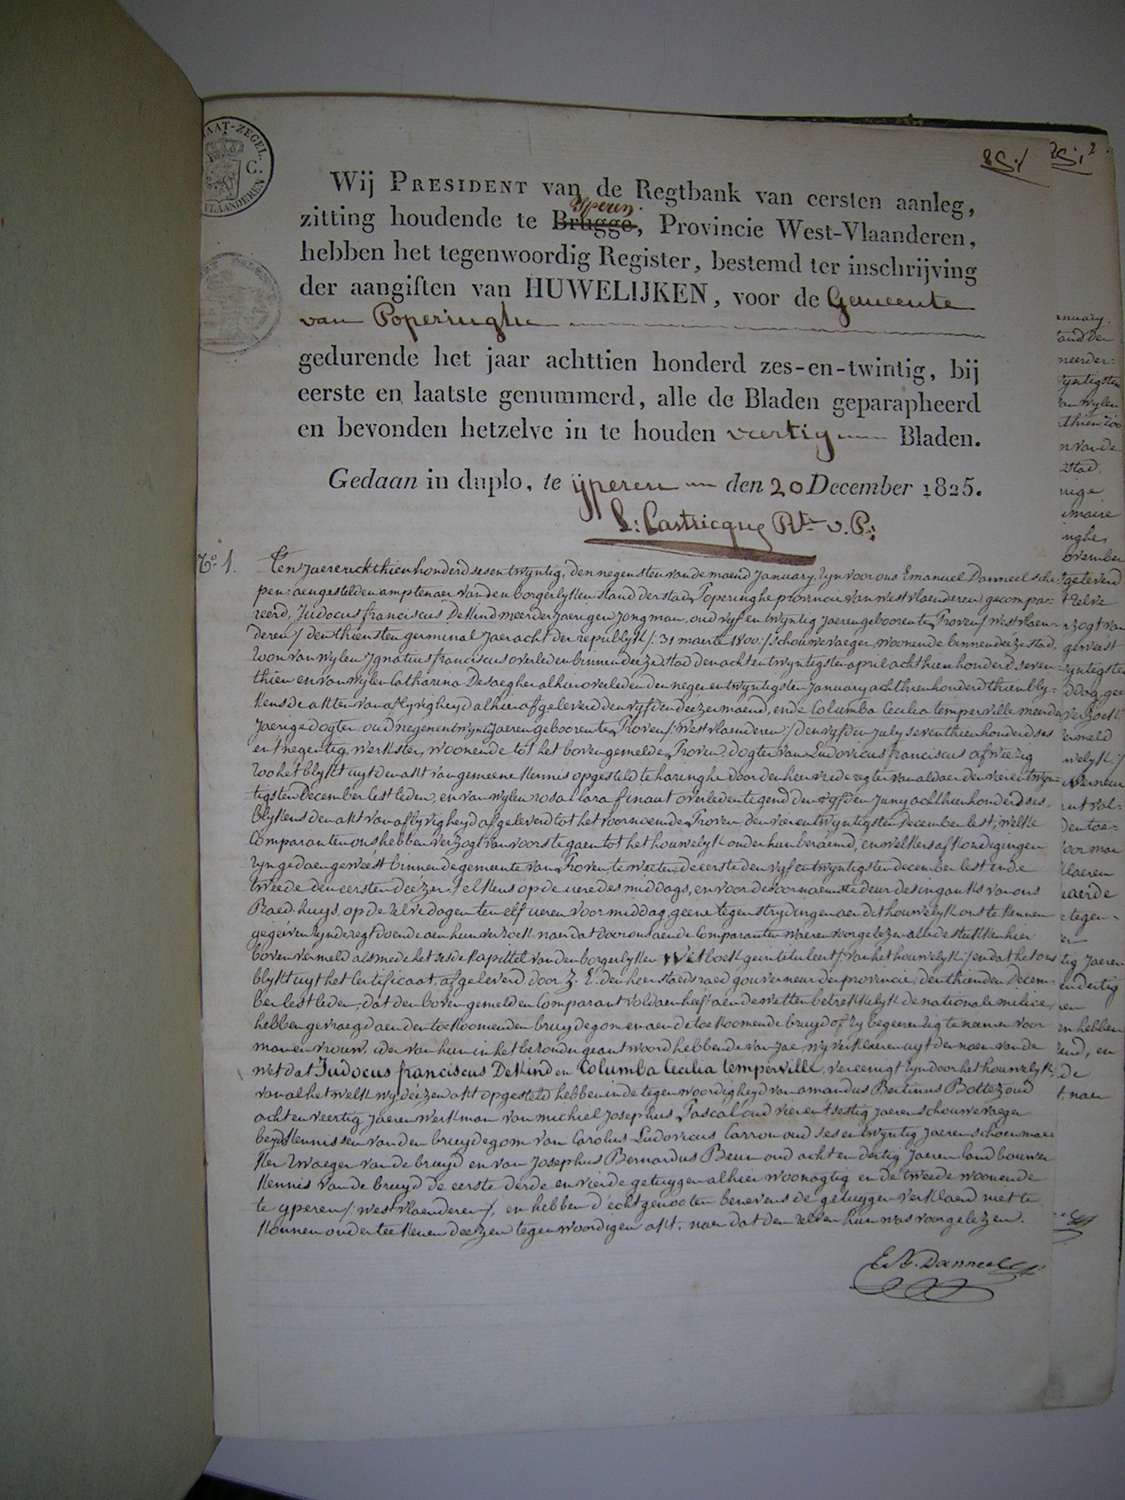 AAT-ZEGEL
C.
VLAANDEREN
2
Wij PRESIDENT van de Regtbank van eersten aanleg,
yperen
zitting houdende te Brugge, Provincie West-Vlaanderen,
hebben het tegenwoordig Register, bestemd ter inschrijving
der aangiften van HUWELIJKEN, voor de Gemeente
van Poperinghe
gedurende het jaar achttien honderd zes-en-twintig, bij
eerste en laatste genummerd, alle de Bladen geparapheerd
en bevonden hetzelve in te houden veertig Bladen.
Gedaan in duplo, te ijperen den 20 December 1825.
L: Castricque Pt v. P:
No 1. Ten Jaere achthien honderd ses en twyntig, den negensten van de maend January, zyn voor ons Emanuel Danneel sche-
pen aengestelden amptenaer van den borgerlyken stand der stad Poperinghe provincie van westvlaenderen gecompa-
reerd, Judocus franciscus DeKind meerderjaerigen jongman, oud vyf en twyntig jaeren geboren te Proven / westvlaen-
deren / den thiensten germinal jaer acht der republyk /: 31 maerte 1800 :/ schouwevaeger, woonende binnen deeze stad,
zoon van wylen Ignatius franciscus overleden binnen deeze stad den acht en twyntigsten april acht hien honderd seven
thien en van wylen Catharina Desaegher alhier overleden den negen en twyntigsten January achthien honderd thien bly-
kens de akten van aflyvigheyd alhier afgeleverd den vyfden deezer maend, ende Columba Cecilia temperville meerder
jaerige dogter oud negen en twyntig jaeren geboren te Proven / westvlaenderen / den vyfden july seventhien honderd ses
en t'negentig, werkster, woonende tot het bovengemelde Proven, dogter van Ludovicus franciscus afweezig
zoo het blykt uyt den akt van gemeene kennis opgesteld te haringhe door den heer vrederegter van aldaer den vier en twyn-
tigsten December lest leden, en van wylen rosa Clara finaut overleden tegend den vyfden Juny achthien honderd ses
blykens den akt van aflyvigheyd afgeleverd tot het voornoemde Proven den vier en twyntigsten december lest; welke
Comparanten ons hebben verzogt van voorts te gaen tot het houwelyk onder hun beraemd, en welkers afkondigingen
zyn gedaen geweest binnen de gemeente van Proven, te weeten de eerste den vyf en twyntigsten december lest en de
tweede den eersten deezer, telkens op de uere des middags, en voor de voornaemste deur des ingank van ons
Raedhuys, op de zelve dagen ten elf ueren voor middag, geene tegenstrydingen aen dit houwelyk ons te kennen
gegeven zynde regt doende aen hun verzoek naer dat door ons aende Comparanten waeren voorgelezen alle de stukken hier
boven vermeld als mede het sesde kapittel van den borgerlyken wetboek geintituleert / van het houwelyk / en dat het ons
blykt uyt het Certificaet, afgeleverd door Z. E. den heer staedsraed gouverneur der provincie, den thienden Decem-
ber lest leden, dat den bovengemelden Comparant voldaen heeft aen de wetten betrekkelyk de nationale milicie,
hebben gevraegd aen den toekoomenden bruydegom en aen de toekoomende bruyd of zy begeeren zig te neemen voor
man en vrouw, ider van hun in het bezonder geantwoord hebbende van Jae, wy verklaeren uyt den naem van de
wet dat Judocus franciscus DeKind en Columba Cecilia temperville, vereenigt zyn door het houwelyk
van al het welk wy deezen akt opgesteld hebben in de tegenwoordigheyd van amandus Bertinus Bottez oud
acht en veertig jaeren werkman van michiel Josephus Pascal oud vier en t'sestig jaeren schouwevaeger
beyde kennissen van den bruydegom van Carolus Ludovicus Carron oud ses en twyntig jaeren schoenmae-
ker zwaeger van de bruyd en van Josephus Bernardus Beun oud acht en dertig jaeren landbouwer
kennis van de bruyd de eerste derde en vierde getuygen alhier woonagtig en de tweede woonende
te yperen /: westvlaenderen :/, en hebben d'echtgenooten benevens de getuygen verklaerd niet te
konnen onderteekenen deezen tegenwoordigen akt, naer dat den zelven hun was voorgelezen.
E. A. Danneel